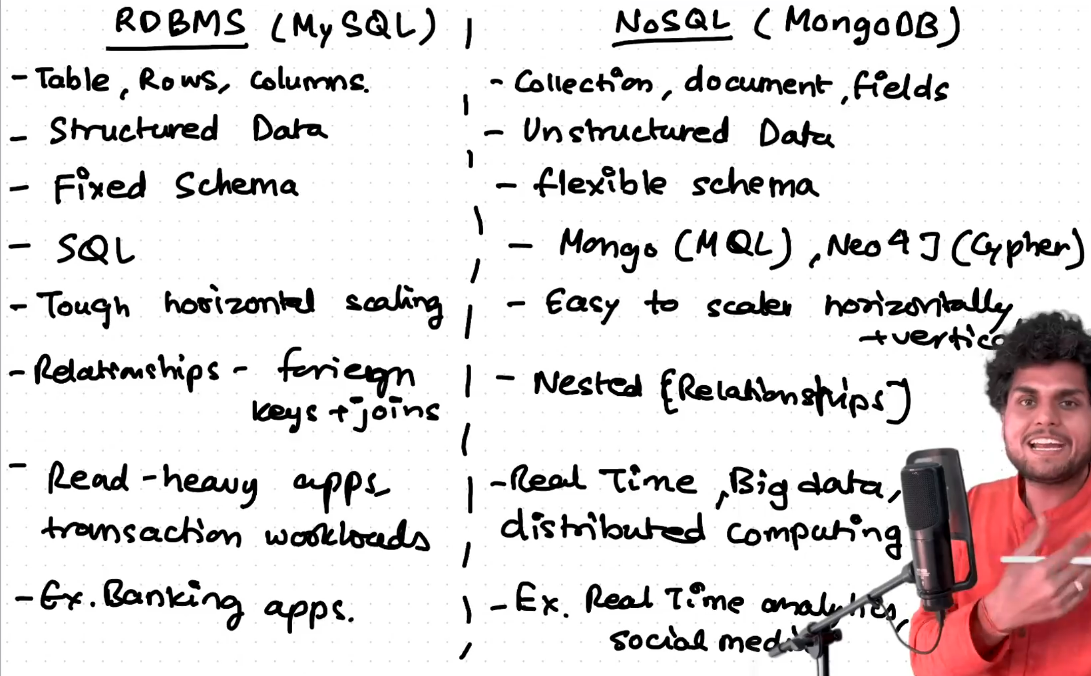 RDBMS (MySQL)
- Table, Rows, columns.
- Structured Data
- Fixed Schema
- SQL
- Tough horizontal scaling
- Relationships - foriegn
keys + joins
- Read-heavy apps
transaction workloads
- Ex. Banking apps.
NoSQL (MongoDB)
- Collection, document, fields
- Unstructured Data
- flexible schema
- Mongo (MQL), Neo4J (Cypher)
- Easy to scaler horizontally
+
- Nested {Relationships]
- Real Time, Big data,
distributed computing
- Ex. Real Time analytics,
social media